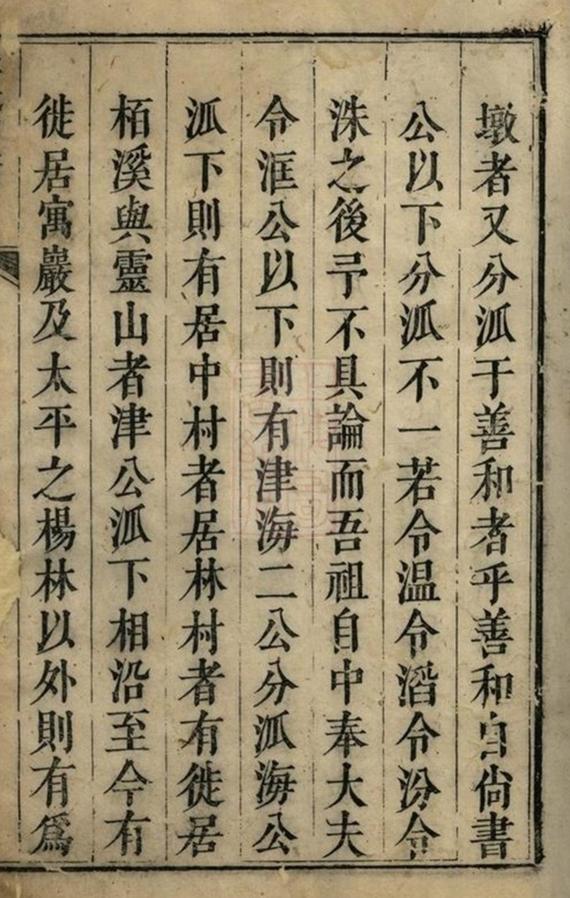 墩者又分泒于善和者乎善和自尙書
公以下分泒不一若令温令滔令汾令
洙之後予不具論而吾祖自中奉大夫
令洭公以下則有津海二公分泒海公
泒下則有居中村者居林村者有徙居
栢溪與靈山者津公泒下相沿至今有
徙居寓巖及太平之楊林以外則有爲